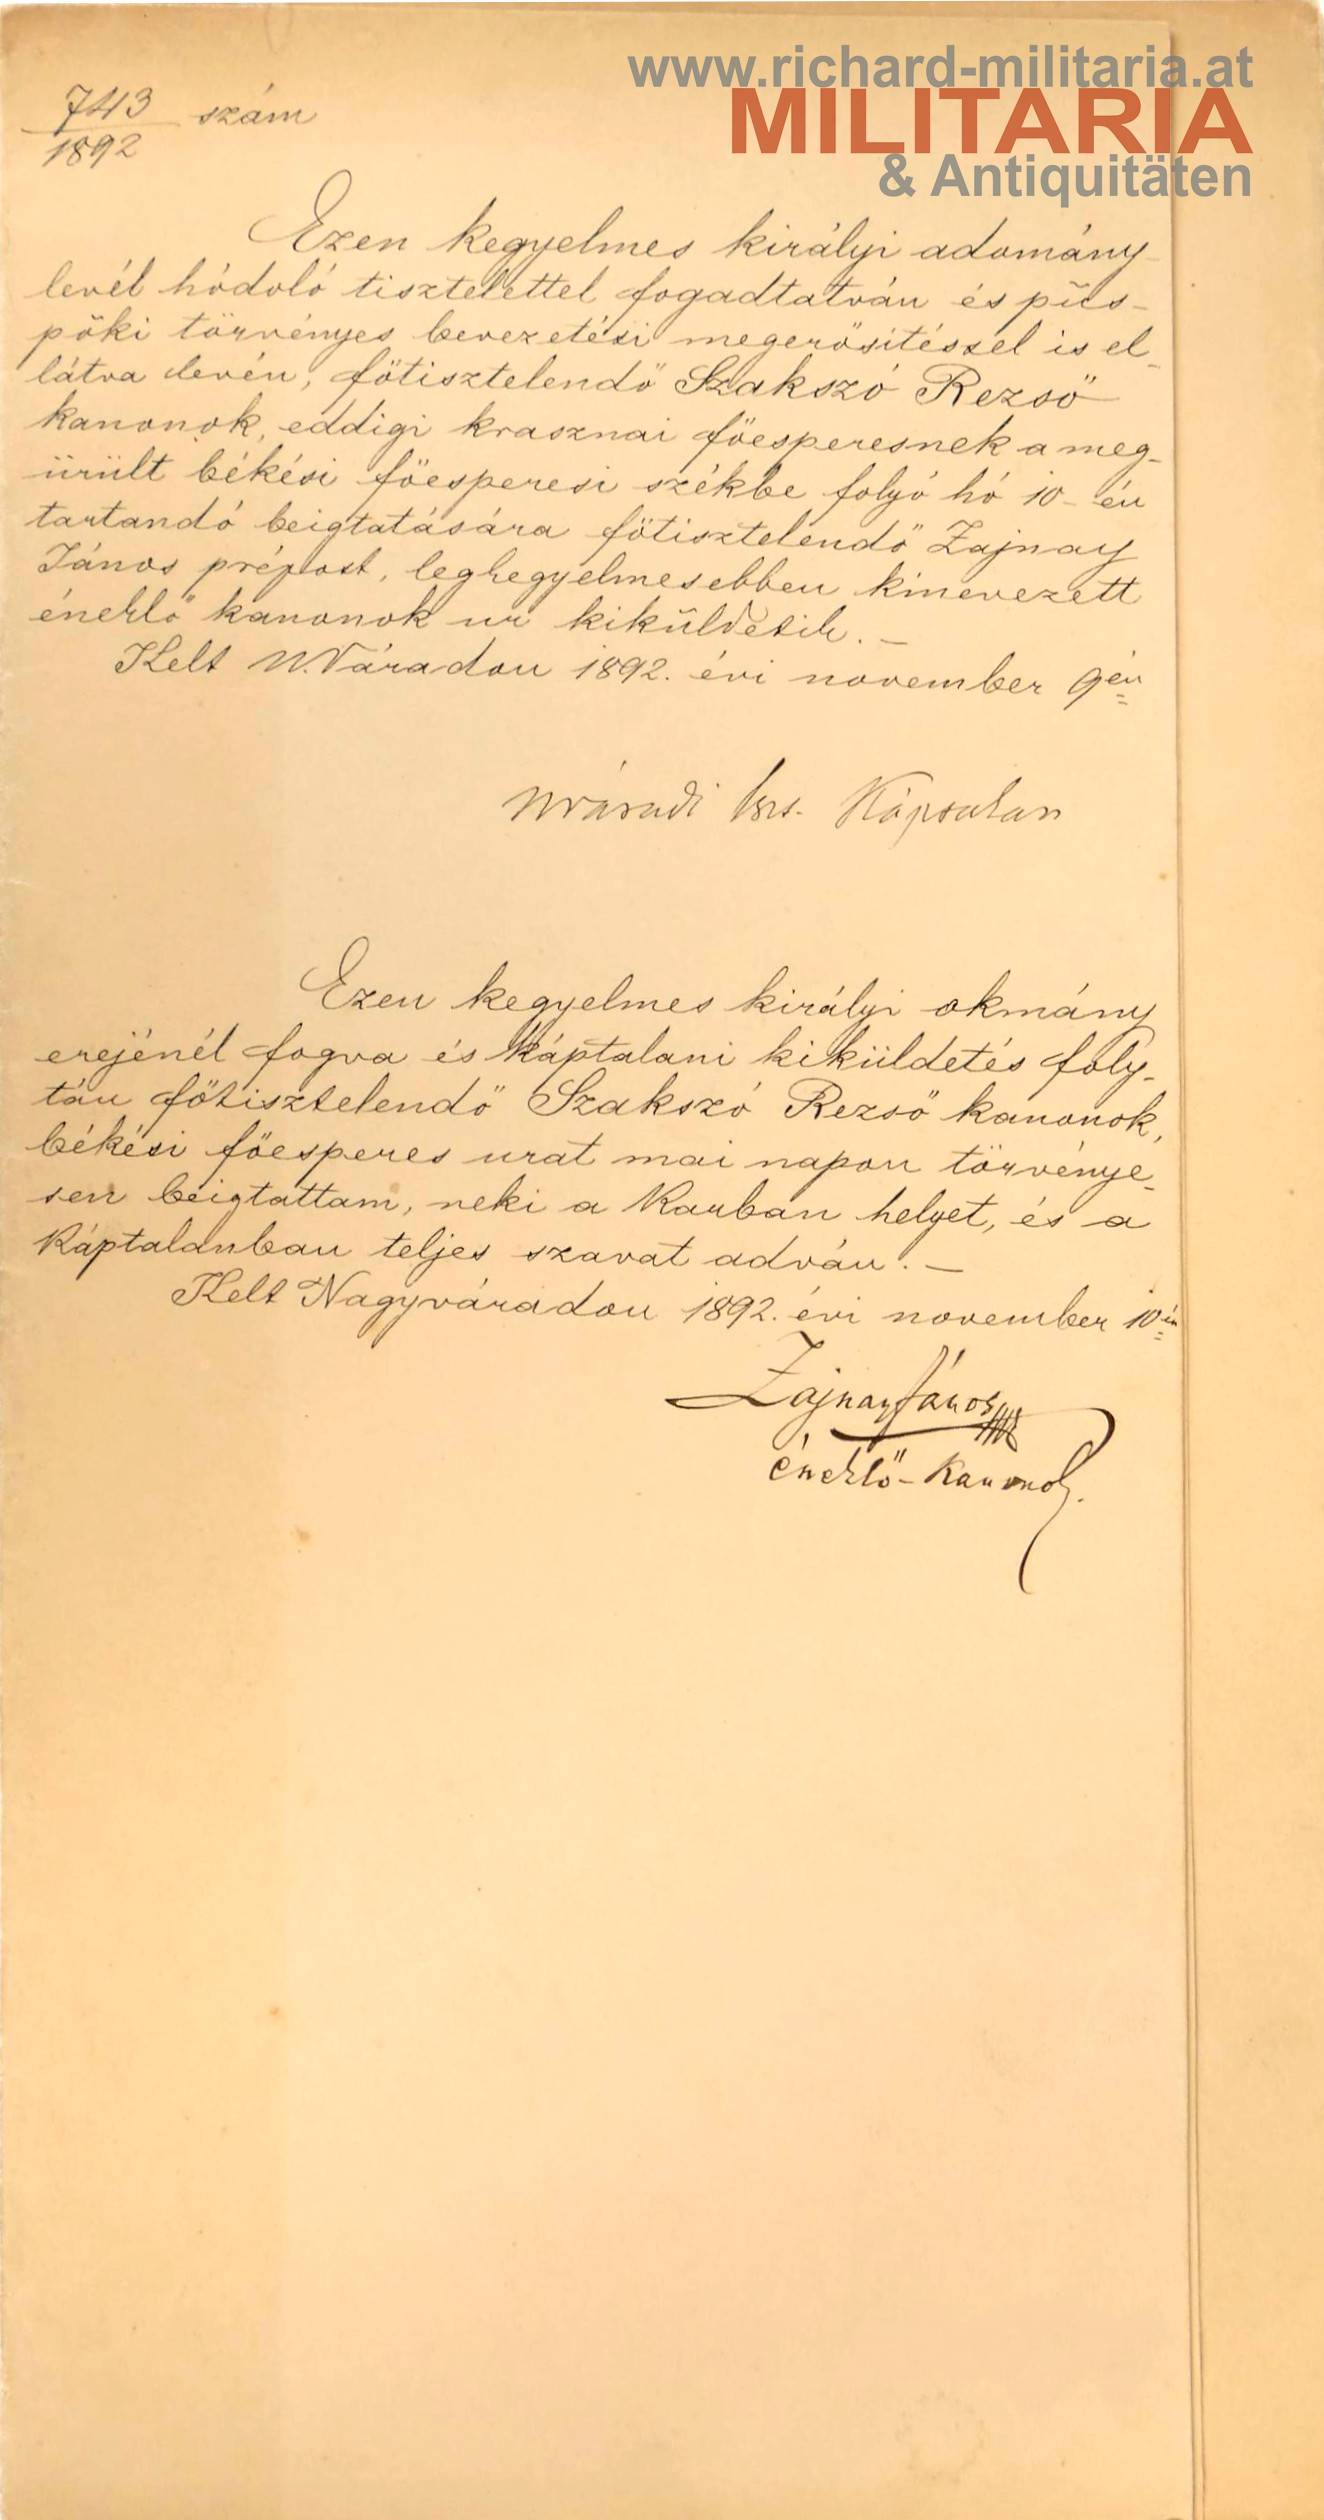 www.richard-militaria.at
MILITARIA
& Antiquitäten
743 szám
1892
Ezen kegyelmes királyi adomány-
levél hódoló tisztelettel fogadtatván és püs-
pöki törvényes bevezetési megerősítéssel is el-
látva levén, főtisztelendő Szakszó Rezső
kanonok, eddigi krasznai főesperesnek a meg-
ürült békési főesperesi székbe folyó hó 10-én
tartandó beigtatására főtisztelendő Zajnay
János prépost, legkegyelmesebben kinevezett
éneklő kanonok ur kiküldetik. —
Kelt N.Váradon 1892. évi november 9én
Nváradi Káptalan
Ezen kegyelmes királyi okmány
erejénél fogva és káptalani kiküldetés foly-
tán főtisztelendő Szakszó Rezső kanonok,
békési főesperes urat mai napon törvénye-
sen beigtattam, neki a Karban helyet, és a
Káptalanban teljes szavat adván. —
Kelt Nagyváradon 1892. évi november 10én
Zajnay János
éneklő-kanonok.